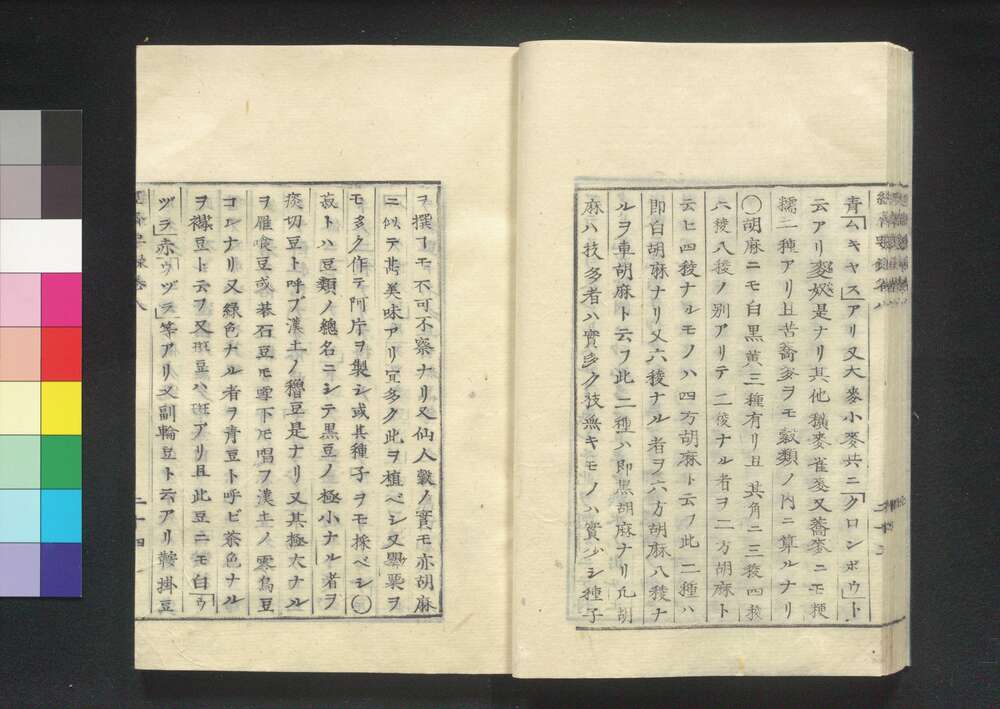 青「ムキヤス」アリ又大麥小麥共ニ「クロンボウ」ト
云アリ麥奴是ナリ其他穬麥雀麥又蕎麥ニモ粳
糯ニ種アリ且苦蕎麥ヲモ穀類ノ内ニ算ルナリ
◯胡麻ニモ白黒黄三種有リ且其角ニ三稜四稜
六稜八稜ノ別アリテ二稜ナル者ヲ二方胡麻ト
云ヒ四稜ナルモノハ四方胡麻ト云フ此二種ハ
即白胡麻ナリ又六稜ナル者ヲ六方胡麻八稜ナ
ルヲ車胡麻ト云フ此二種ハ即黒胡麻ナリ凡胡
麻ハ枝多者ハ實多ク枝無キモノハ實少シ種子
ヲ撰フモ不可不察ナリ又仙人穀ノ實モ亦胡麻
ニ似テ甚美味アリ宜多ク此ヲ植ベシ又罌粟ヲ
モ多ク作テ阿片ヲ製シ或其種子ヲモ採ベシ◯
菽トハ豆類ノ總名ニシテ黒豆ノ極小ナル者ヲ
痰切豆ト呼ブ漢土ノ穭豆是ナリ又其極大ナル
ヲ雁喰豆或碁石豆モ雫下モ唱フ漢土ノ零烏豆
コレナリ又緑色ナル者ヲ青豆ト呼ビ茶色ナル
ヲ豆ト云フ又斑豆ハ斑アリ且此豆ニモ白「ウ
ヅラ」赤「ウヅラ」等アリ又副輪豆ト云アリ鞍掛豆
二十四